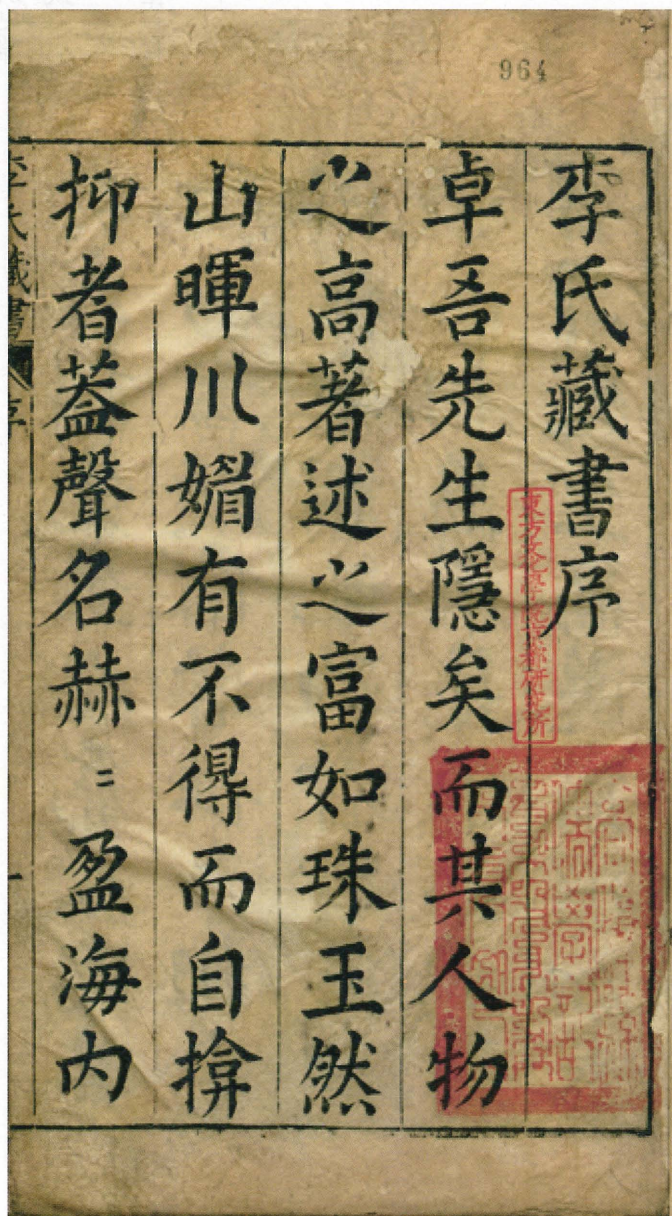 964
李氏藏書序
卓吾先生隱矣而其人物
之高著述之富如珠玉然
山暉川媚有不得而自揜
抑者蓋聲名赫〻盈海内
李氏藏書
序
一
東方文化學院京都研究所